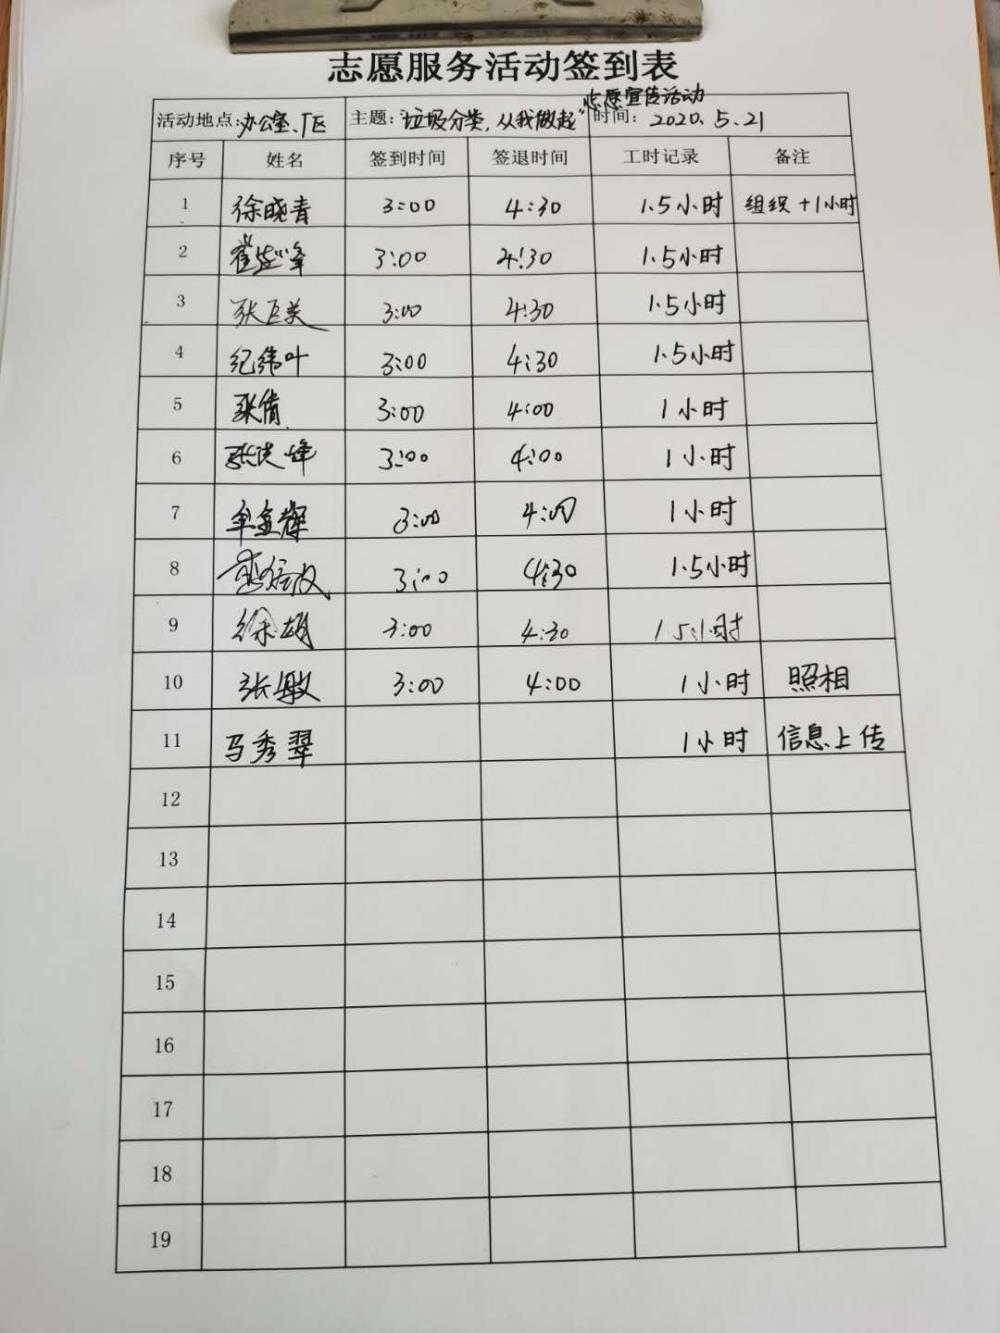 志愿服务活动签到表
志愿宣传活动
活动地点:办公室、厂区 主题:"垃圾分类,从我做起" 时间: 2020.5.21
序号 姓名 签到时间 签退时间 工时记录 备注
1 徐晓青 3:00 4:30 1.5小时 组织+1小时
2 3:00 4:30 1.5小时
3 3:00 4:30 1.5小时
4 纪纬叶 3:00 4:30 1.5小时
5 张倩 3:00 4:00 1小时
6 3:00 4:00 1小时
7 牟金辉 3:00 4:00 1小时
8 3:00 4:30 1.5小时
9 3:00 4:30 1.5小时
10 张敏 3:00 4:00 1小时 照相
11 马秀翠 1小时 信息上传
12
13
14
15
16
17
18
19